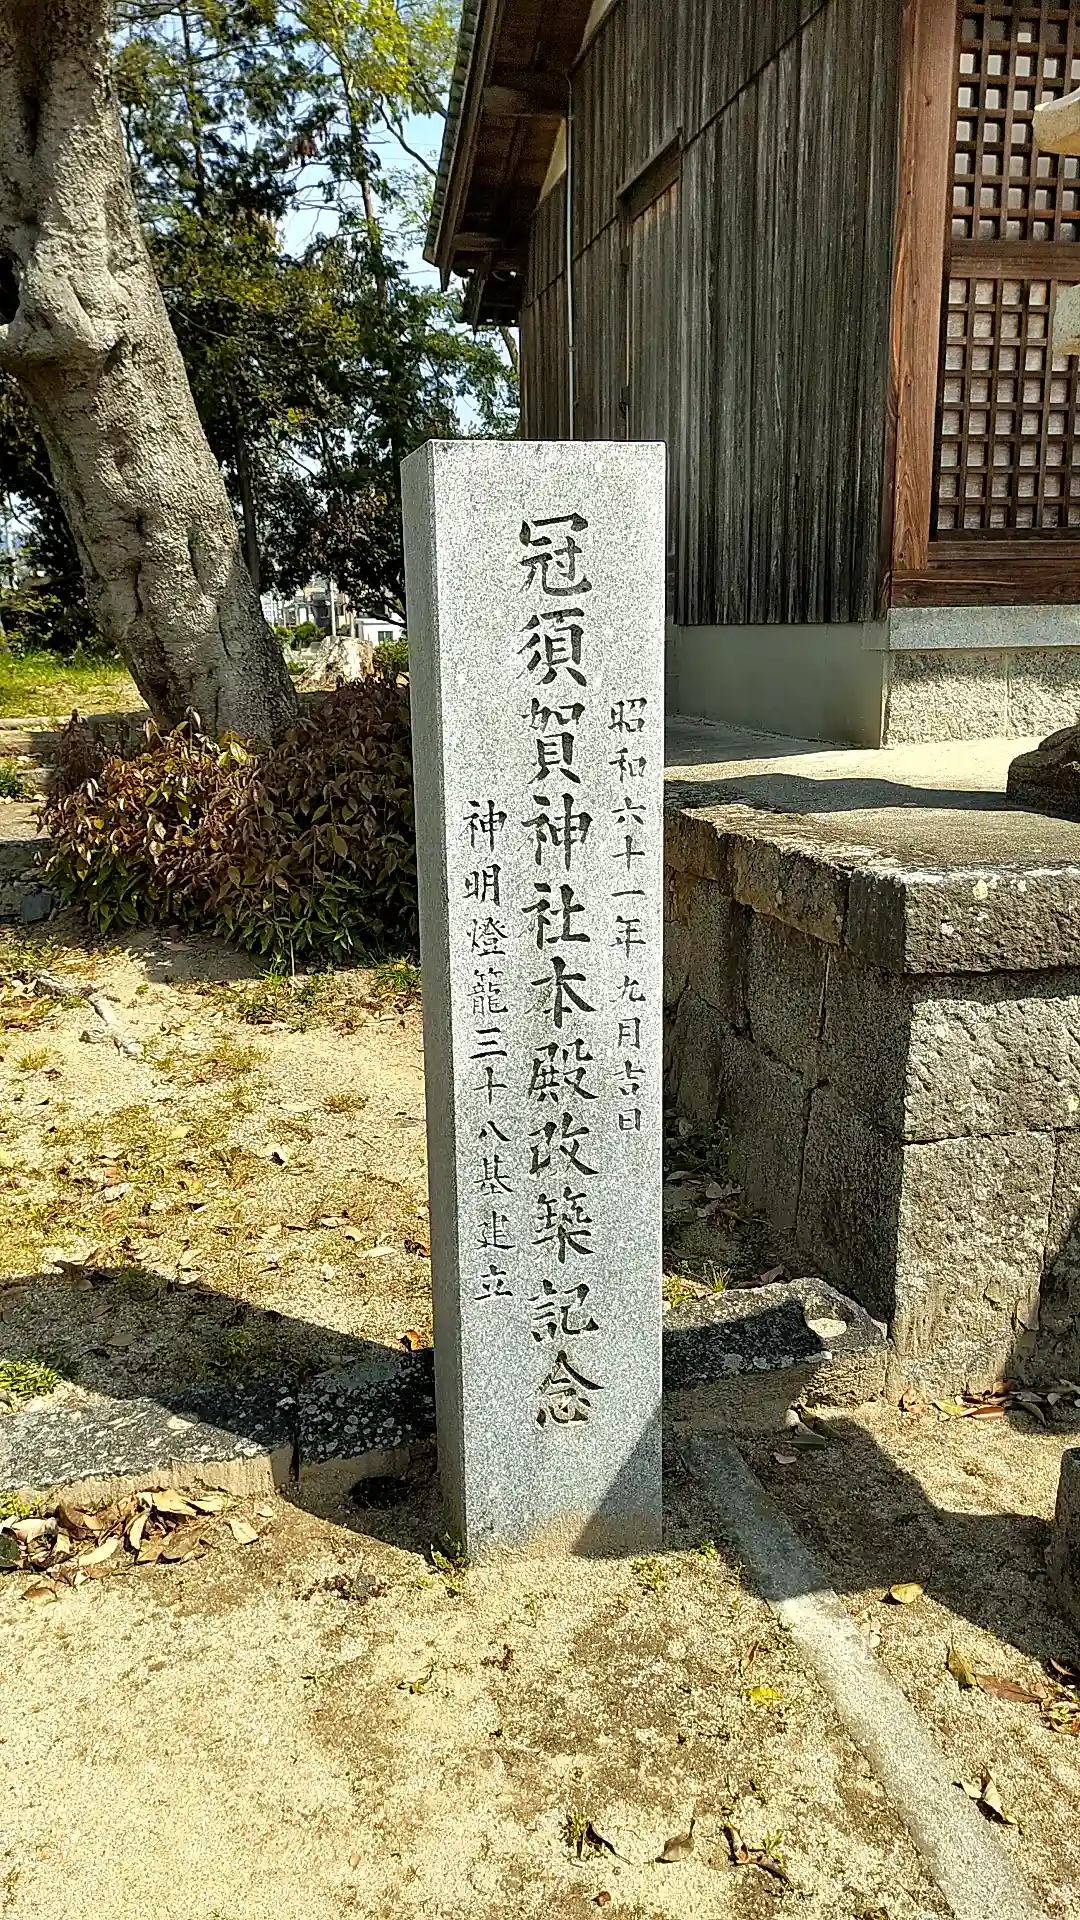 昭和六十一年九月吉日
冠須賀神社本殿改築記念
神明燈籠三十八基建立